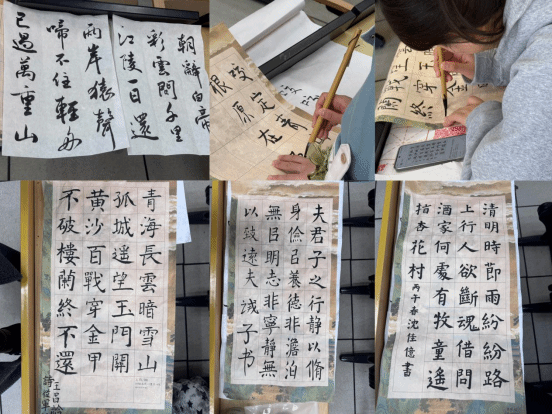 朝辭白帝
彩雲間千里
江陵一日還
兩岸猿聲
啼不住輕舟
已過萬重山
咬定青
根原在
穿金
終
青海長雲暗雪山
孤城遥望玉門關
黄沙百戰穿金甲
不破樓蘭終不還
王昌齡
夫君子之行靜以脩
身儉㠯養德非澹泊
無㠯明志非寧靜無
以致遠夫 诫子书
清明時節雨紛紛路
上行人欲斷魂借問
酒家何處有牧童遥
指杏花村 丙午春沈佳億書